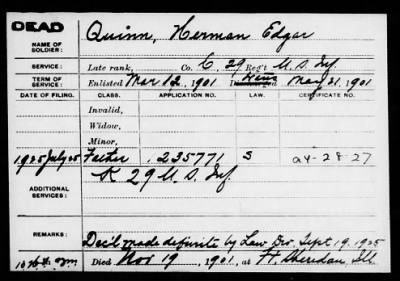 DEAD
Quinn, Herman Edgar
NAME OF SOLDIER:
SERVICE: Late rank, Co. C. 29 Reg't U. S. Inf
TERM OF SERVICE: Enlisted Mar 12, 1901 Discharged May 21, 1901
DATE OF FILING. CLASS. APPLICATION NO. LAW. CERTIFICATE NO.
Invalid,
Widow,
Minor,
1905 July 25 Father 235771 S
K 29 U. S. Inf.
ADDITIONAL SERVICES:
REMARKS: Decl made definite by Law Div. Sept 19, 1905
Died Nov 19, 1901, at Ft. Sheridan, Ill.